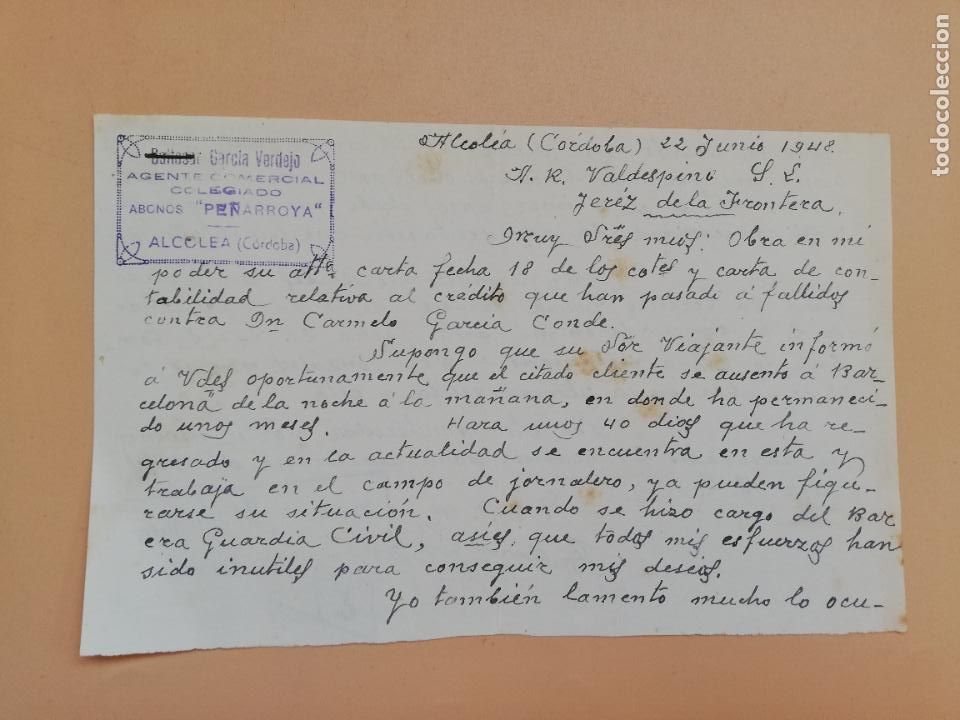 Baltasar García Verdejo
AGENTE COMERCIAL
COLEGIADO
ABONOS "PEÑARROYA"
ALCOLEA (Córdoba)
Alcoléa (Córdoba) 22 Junio 1948.
A. R. Valdespino S. L.
Jeréz de la Frontera.
Muy Sres mios: Obra en mi
poder su atta. carta fecha 18 de los cotes y carta de con-
tabilidad relativa al crédito que han pasado á fallidos
contra Dn Carmelo Garcia Conde.
Supongo que su Sor Viajante informó
á Vdes oportunamente que el citado cliente se ausento á Bar-
celona de la noche á la mañana, en donde ha permaneci-
do unos meses. Hara unos 40 dias que ha re-
gresado y en la actualidad se encuentra en esta y
trabaja en el campo de jornalero, ya pueden figu-
rarse su situación. Cuando se hizo cargo del Bar
era Guardia Civil, asíes, que todos mis esfuerzos han
sido inutiles para conseguir mis deseos.
Yo también lamento mucho lo ocu-
todocoleccion.net